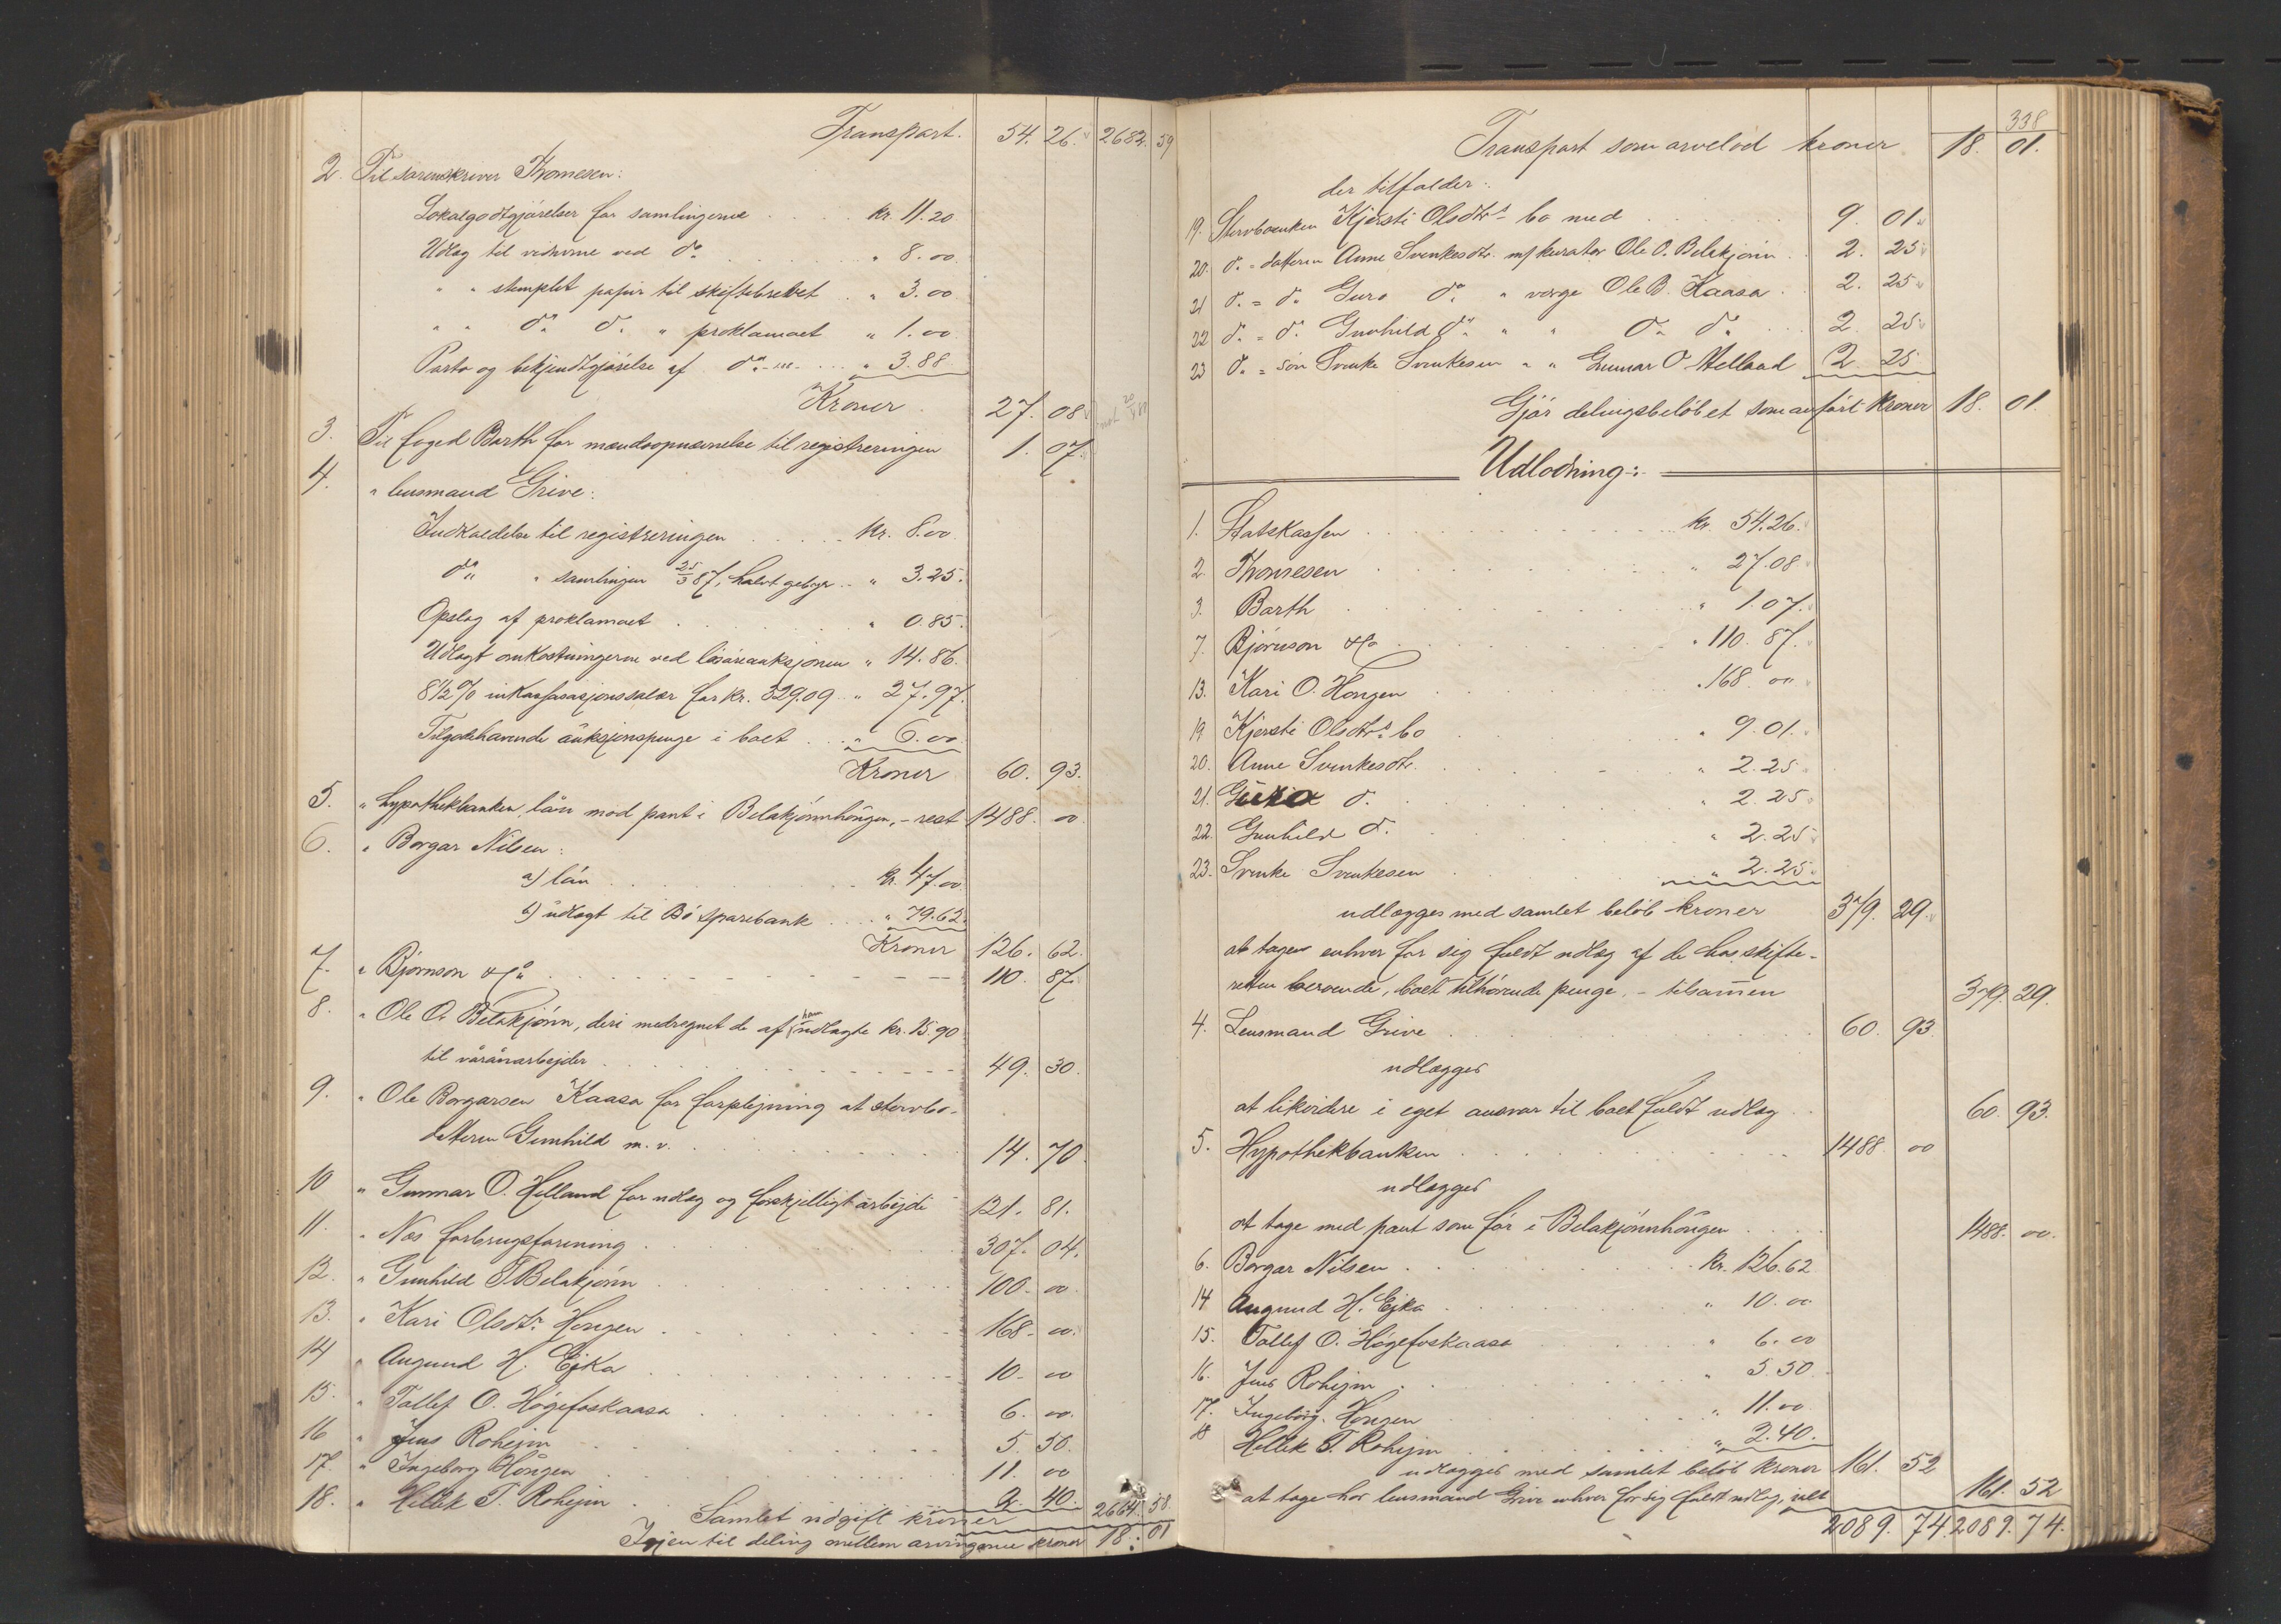 Transport. 54. 26. 2682. 59
2. Til sorenskriver Thomesen:
Lokalgodtgjörelser for samlingerne . . . . kr. 11.20
Udlæg til vidnerne ved do . . . . . . " 8.00
" " stemplet papir til skiftebrevet . . " 3.00
" " do do " proklamaet " 1.00
Porto og bekjendtgjörelse af do . . . . " 3.88
Kroner 27. 08.
3. Til foged Barth for mændsopnævnelse til registreringen 1. 07.
4. " lensmand Grive:
Indkaldelse til registreringen . . . . . kr. 8.00
do " samlingen 25/3 87, halvt gebyr . . " 3.25.
Opslag af proklamaet . . . . . . . " 0.85.
Udlagt omkostningerne ved lösöreauksjonen " 14.86.
8 1/2 % inkassasjonssalær for kr. 329.09 . . " 27.97.
Tilgodehavende auksjonspenge i boet . . . " 6.00
Kroner 60. 93.
5. " Hypothekbanken, lån mod pant i Belakjönnhöugen, - rest 1488. 00
6. " Borgar Nilsen:
a) lån . . . . . . . . . . kr. 47.00
b) udlagt til Bö sparebank . . . . " 79.62.
Kroner 126. 62.
7. " Björnson & Co . . . . . . . 110. 87.
8. " Ole O. Belakjönn, deri medregnet de af ham udlagte kr. 15.90
til våronnarbejder . . . . . . . . 49. 30.
9. " Ole Borgarsen Kaasa for forplejning at stervbo-
datteren Gunhild m. v. . . . . . . 14. 70.
10 " Gunnar O. Helland for udlæg og forskjelligt arbejde 121. 81.
11. " Næs forbrugsforening . . . . . . . 307. 04.
12. " Gunhild T Belakjönn . . . . . . . 100. 00.
13. " Kari Olsdtr. Hougen . . . . . . . 168. 00.
14 " Augund H. Ejka . . . . . . . . 10. 00
15. " Tollef O. Högefoskaasa . . . . . . 6. 00.
16 " Jens Rohejm . . . . . . . . 5. 50.
17. " Ingeborg Hougen . . . . . . . . 11. 00
18. " Hellek T. Rohejm . . . . . . . . 2. 40. 2664. 58.
Samlet udgift kroner
Igjen til deling mellem arvingerne kroner 18. 01
338
Transport som arvelod kroner 18. 01.
der tilfalder:
19. Stervboenken Kjersti Olsdtrs bo med . . . . 9. 01.
20. do = datteren Anne Svenkesdtr. m/ kurator Ole O. Belakjönn . . 2. 25
21 do = do Guro do " værge Ole B. Kaasa . . 2. 25
22 do = do Gunhild do " " do do . . . 2. 25
23 do = sön Svenke Svenkesen " " Gunnar O. Helland 2. 25
Gjör delingsbelöbet som anfört kroner 18. 01.
Udlodning:
1. Statskassen . . . . . . . . kr. 54.26.
2. Thomesen . . . . . . . . " 27.08
3. Barth . . . . . . . . " 1.07.
7. Björnson & Co . . . . . . . " 110. 87.
13. Kari O. Hougen . . . . . . . " 168 00
19 Kjersti Olsdtrs bo . . . . . . " 9.01.
20. Anne Svenkesdtr. . . . . . . " 2.25
21. Guro do . . . . . . . . " 2.25
22. Gunhild do . . . . . . . " 2.25
23. Svenke Svenkesen . . . . . . " 2.25
udlægges med samlet belöb kroner 379. 29.
at tage enhver for sig fuldt udlæg af de hos skifte-
retten beroende, boet tilhörende penge, - tilsammen 379. 29.
4. Lensmand Grive . . . . . . . . 60. 93
udlægges
at likvidere i eget ansvar til boet fuldt udlæg . . 60. 93.
5. Hypothekbanken . . . . . . . . 1488. 00
udlægges
at tage med pant som för i Belakjönnhöugen . . . 1488. 00.
6. Borgar Nilsen . . . . . . . kr. 126.62
14 Augund H. Ejka . . . . . . . " 10.00
15. Tollef O. Högefoskaasa . . . . . " 6.00
16. Jens Rohejm . . . . . . . " 5.50.
17. Ingeborg Hougen . . . . . . " 11.00
18 Hellek T. Rohejm . . . . . . " 2.40.
udlægges med samlet belöb kroner 161. 52
at tage hos lensmand Grive enhver for sig fuldt udlæg, ialt 161. 52
2089. 74. 2089. 74.